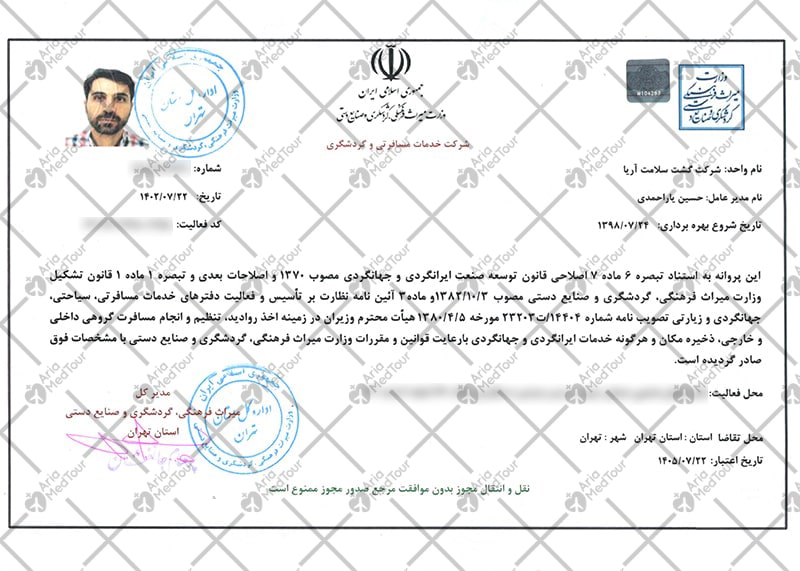 جمهوری اسلامی ایران
وزارت میراث فرهنگی، گردشگری و صنایع دستی
وزارت
میراث فرهنگی
گردشگری و صنایع دستی
شرکت خدمات مسافرتی و گردشگری
اداره کل استان
تهران
نام واحد: شرکت گشت سلامت آریا
شماره:
نام مدیر عامل: حسین یاراحمدی
تاریخ: ۱۴۰۲/۰۷/۲۲
تاریخ شروع بهره برداری: ۱۳۹۸/۰۷/۲۴
کد فعالیت:
این پروانه به استناد تبصره ۶ ماده ۷ اصلاحی قانون توسعه صنعت ایرانگردی و جهانگردی مصوب ۱۳۷۰ و اصلاحات بعدی و تبصره ۱ ماده ۱ قانون تشکیل
وزارت میراث فرهنگی، گردشگری و صنایع دستی مصوب ۱۳۸۲/۱۰/۳و ماده۳ آئین نامه نظارت بر تأسیس و فعالیت دفترهای خدمات مسافرتی، سیاحتی،
جهانگردی و زیارتی تصویب نامه شماره ۱۴۴۰۴/ت۲۳۲۰۳ مورخه ۱۳۸۰/۴/۵ هیأت محترم وزیران در زمینه اخذ روادید، تنظیم و انجام مسافرت گروهی داخلی
و خارجی، ذخیره مکان و هرگونه خدمات ایرانگردی و جهانگردی بارعایت قوانین و مقررات وزارت میراث فرهنگی، گردشگری و صنایع دستی با مشخصات فوق
صادر گردیده است.
محل فعالیت:
مدیر کل
میراث فرهنگی، گردشگری و صنایع دستی
استان تهران
اداره کل استان
تهران
محل تقاضا استان : استان تهران شهر : تهران
تاریخ اعتبار: ۱۴۰۵/۰۷/۲۲
نقل و انتقال مجوز بدون موافقت مرجع صدور مجوز ممنوع است
Aria
MedTour